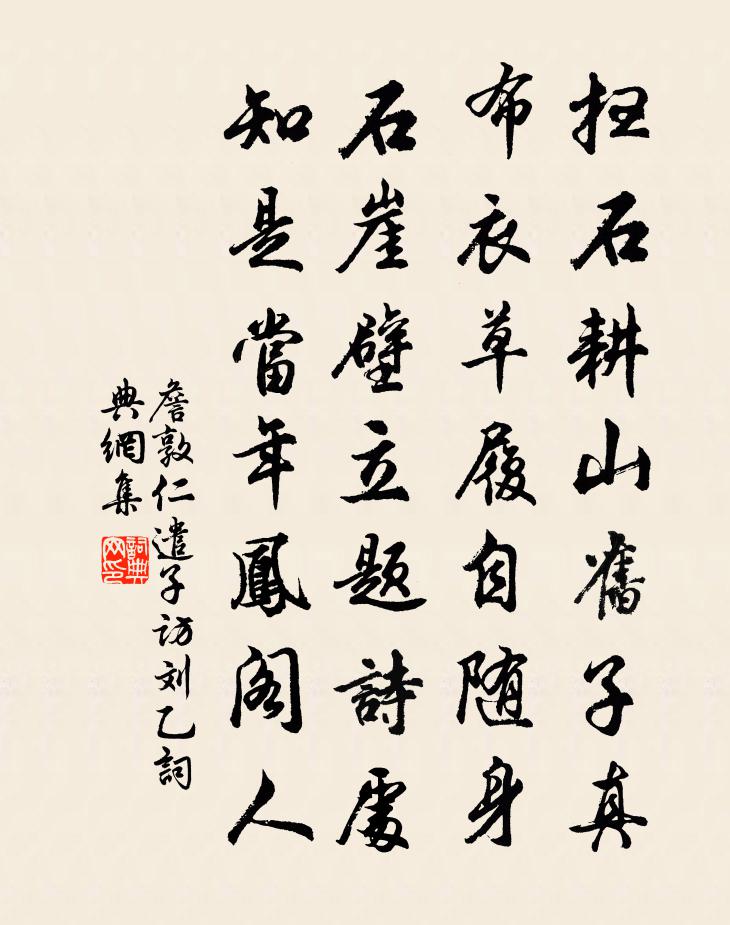 扫石耕山舊子真
布衣草履自随身
石崖壁立题詩處
知是當年鳳阁人
詹敦仁遣子访刘乙詞
典網集
詞典网印